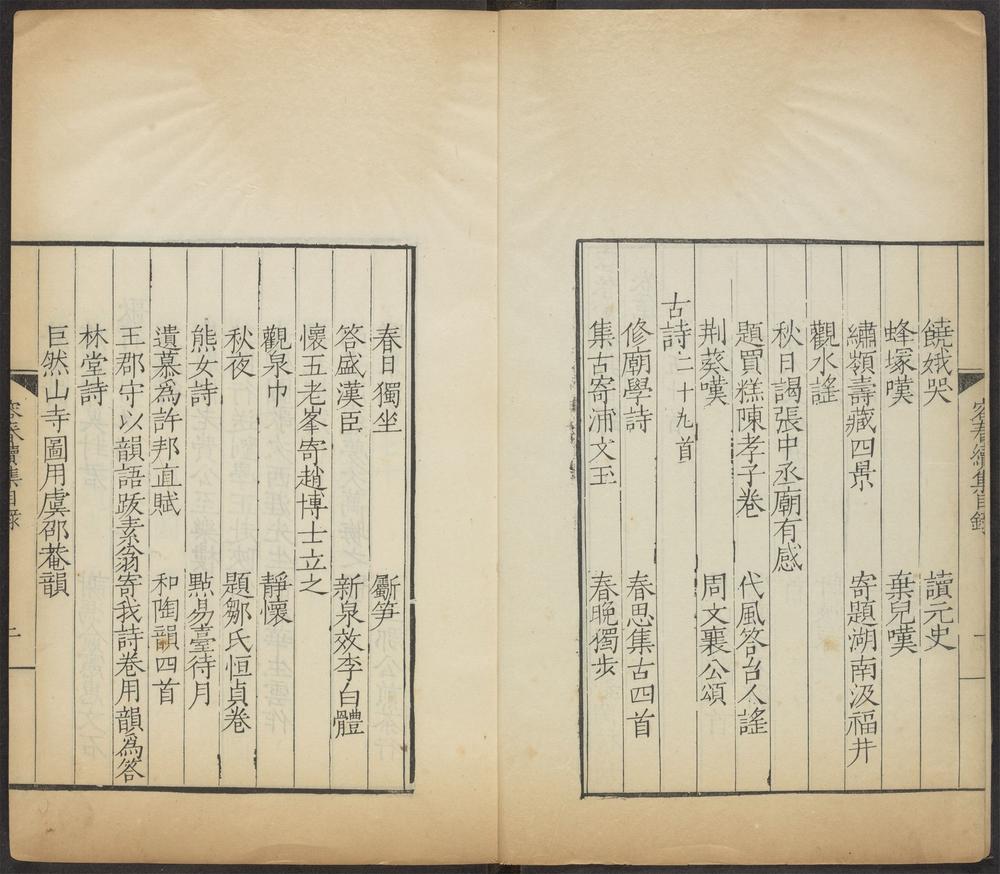 容春續集目錄
饒娥哭　讀元史
蜂塚嘆　棄兒嘆
繡嶺壽藏四景　寄題湖南汲福井
觀水謠
秋日謁張中丞廟有感
題買糕陳孝子卷　代風答台人謠
荆葵嘆　周文襄公頌
古詩二十九首
修廟學詩　春思集古四首
集古寄浦文玉　春晚獨步
春日獨坐　斸笋
答盛漢臣　新泉效李白體
懷五老峯寄趙博士立之
觀泉巾　靜懷
秋夜　題鄒氏恒貞卷
熊女詩　點易臺待月
遺慕爲許邦直賦　和陶韻四首
王郡守以韻語跋素翁寄我詩卷用韻爲答
林堂詩
巨然山寺圖用虞邵菴韻
容春續集目錄　二